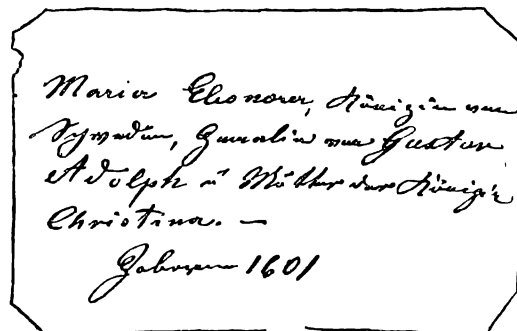 Maria Eleonora, Königin von
Schweden, Gemalin von Gustav
Adolph u Mutter der Königin
Christina. —
Geboren 1601